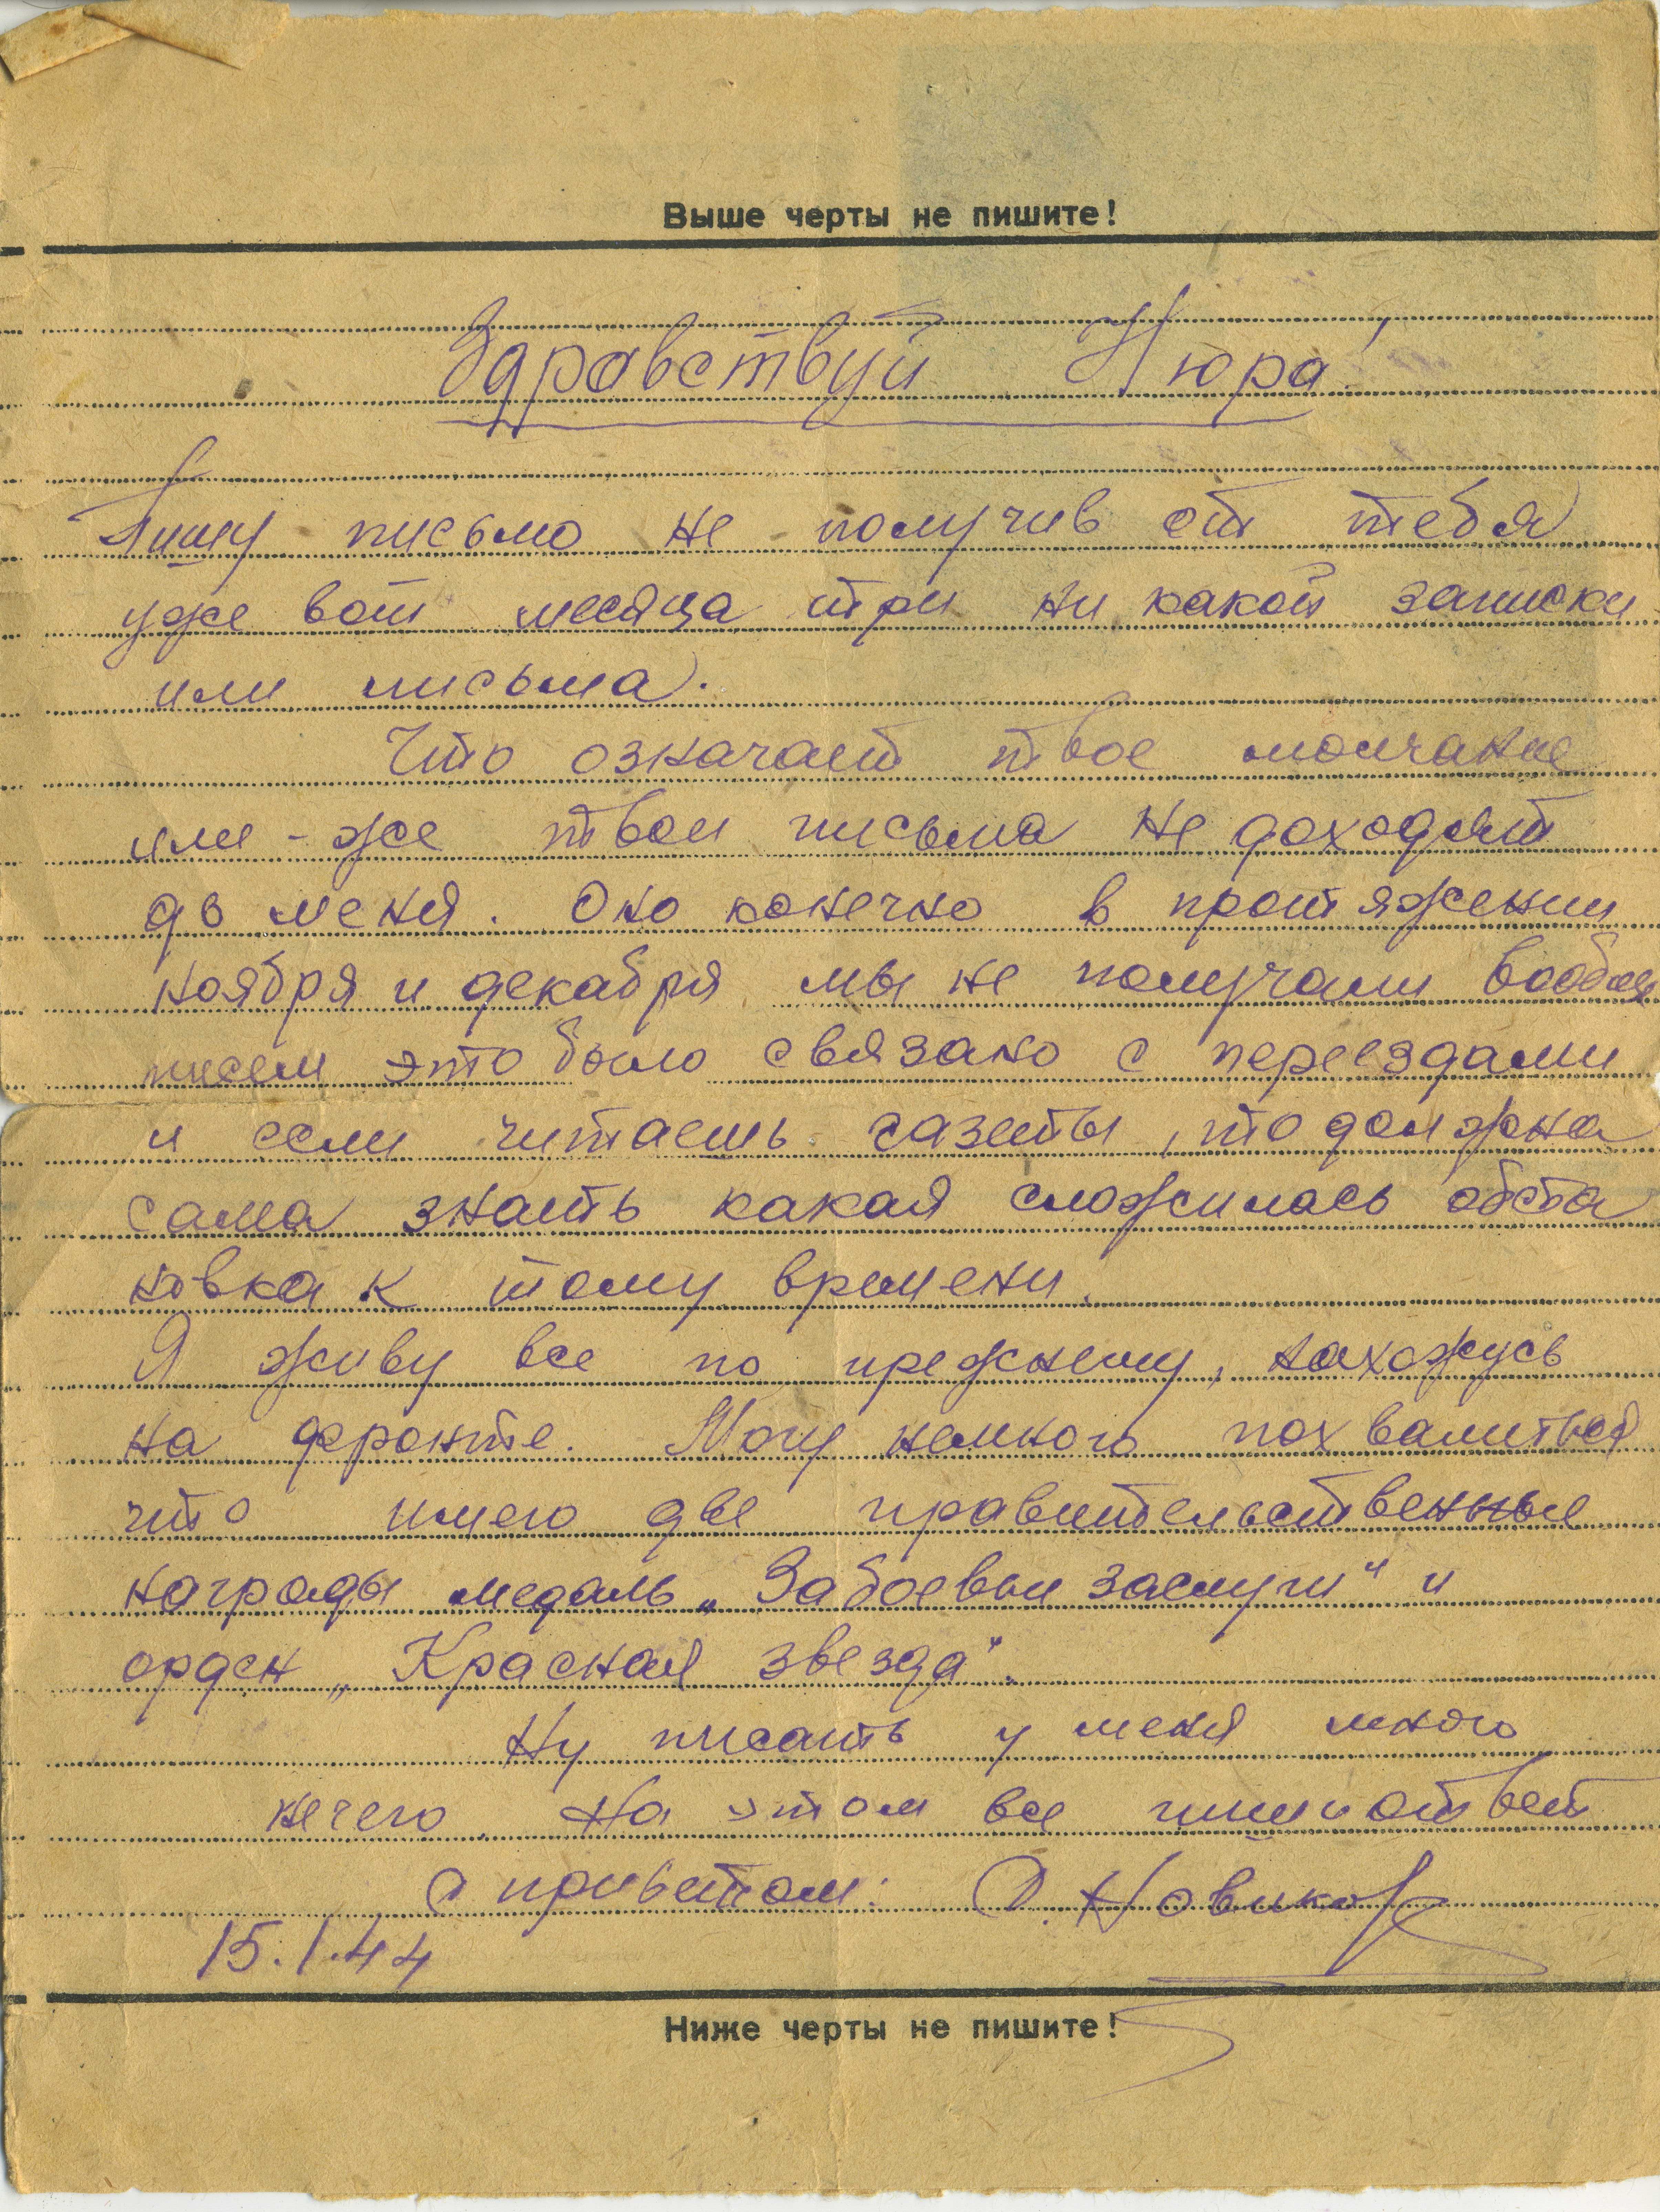 Выше черты не пишите!
Здравствуй Нюра!
Пишу письмо не получив от тебя
уже вот месяца три ни какой записки
или письма.
Что означает твое молчание
или - же твои письма не доходят
до меня. Оно конечно в протяжении
ноября и декабря мы не получали вообще
писем это было связано с переездами
и если читаешь газеты, то должна
сама знать какая сложилась обста
новка к тому времени.
Я живу все по прежнему, нахожусь
на фронте. Могу немного похвалиться
что имею две правительственные
награды медаль „За боевые заслуги“ и
орден „Красная звезда“.
Ну писать у меня много
нечего. На этом все пиши ответ
с приветом: Новиков
15.1.44
Ниже черты не пишите!